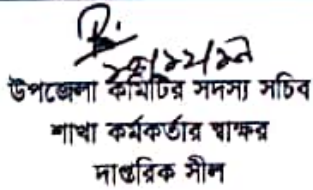 উপজেলা কমিটির সদস্য সচিব
শাখা কর্মকর্তার স্বাক্ষর
দাপ্তরিক সীল